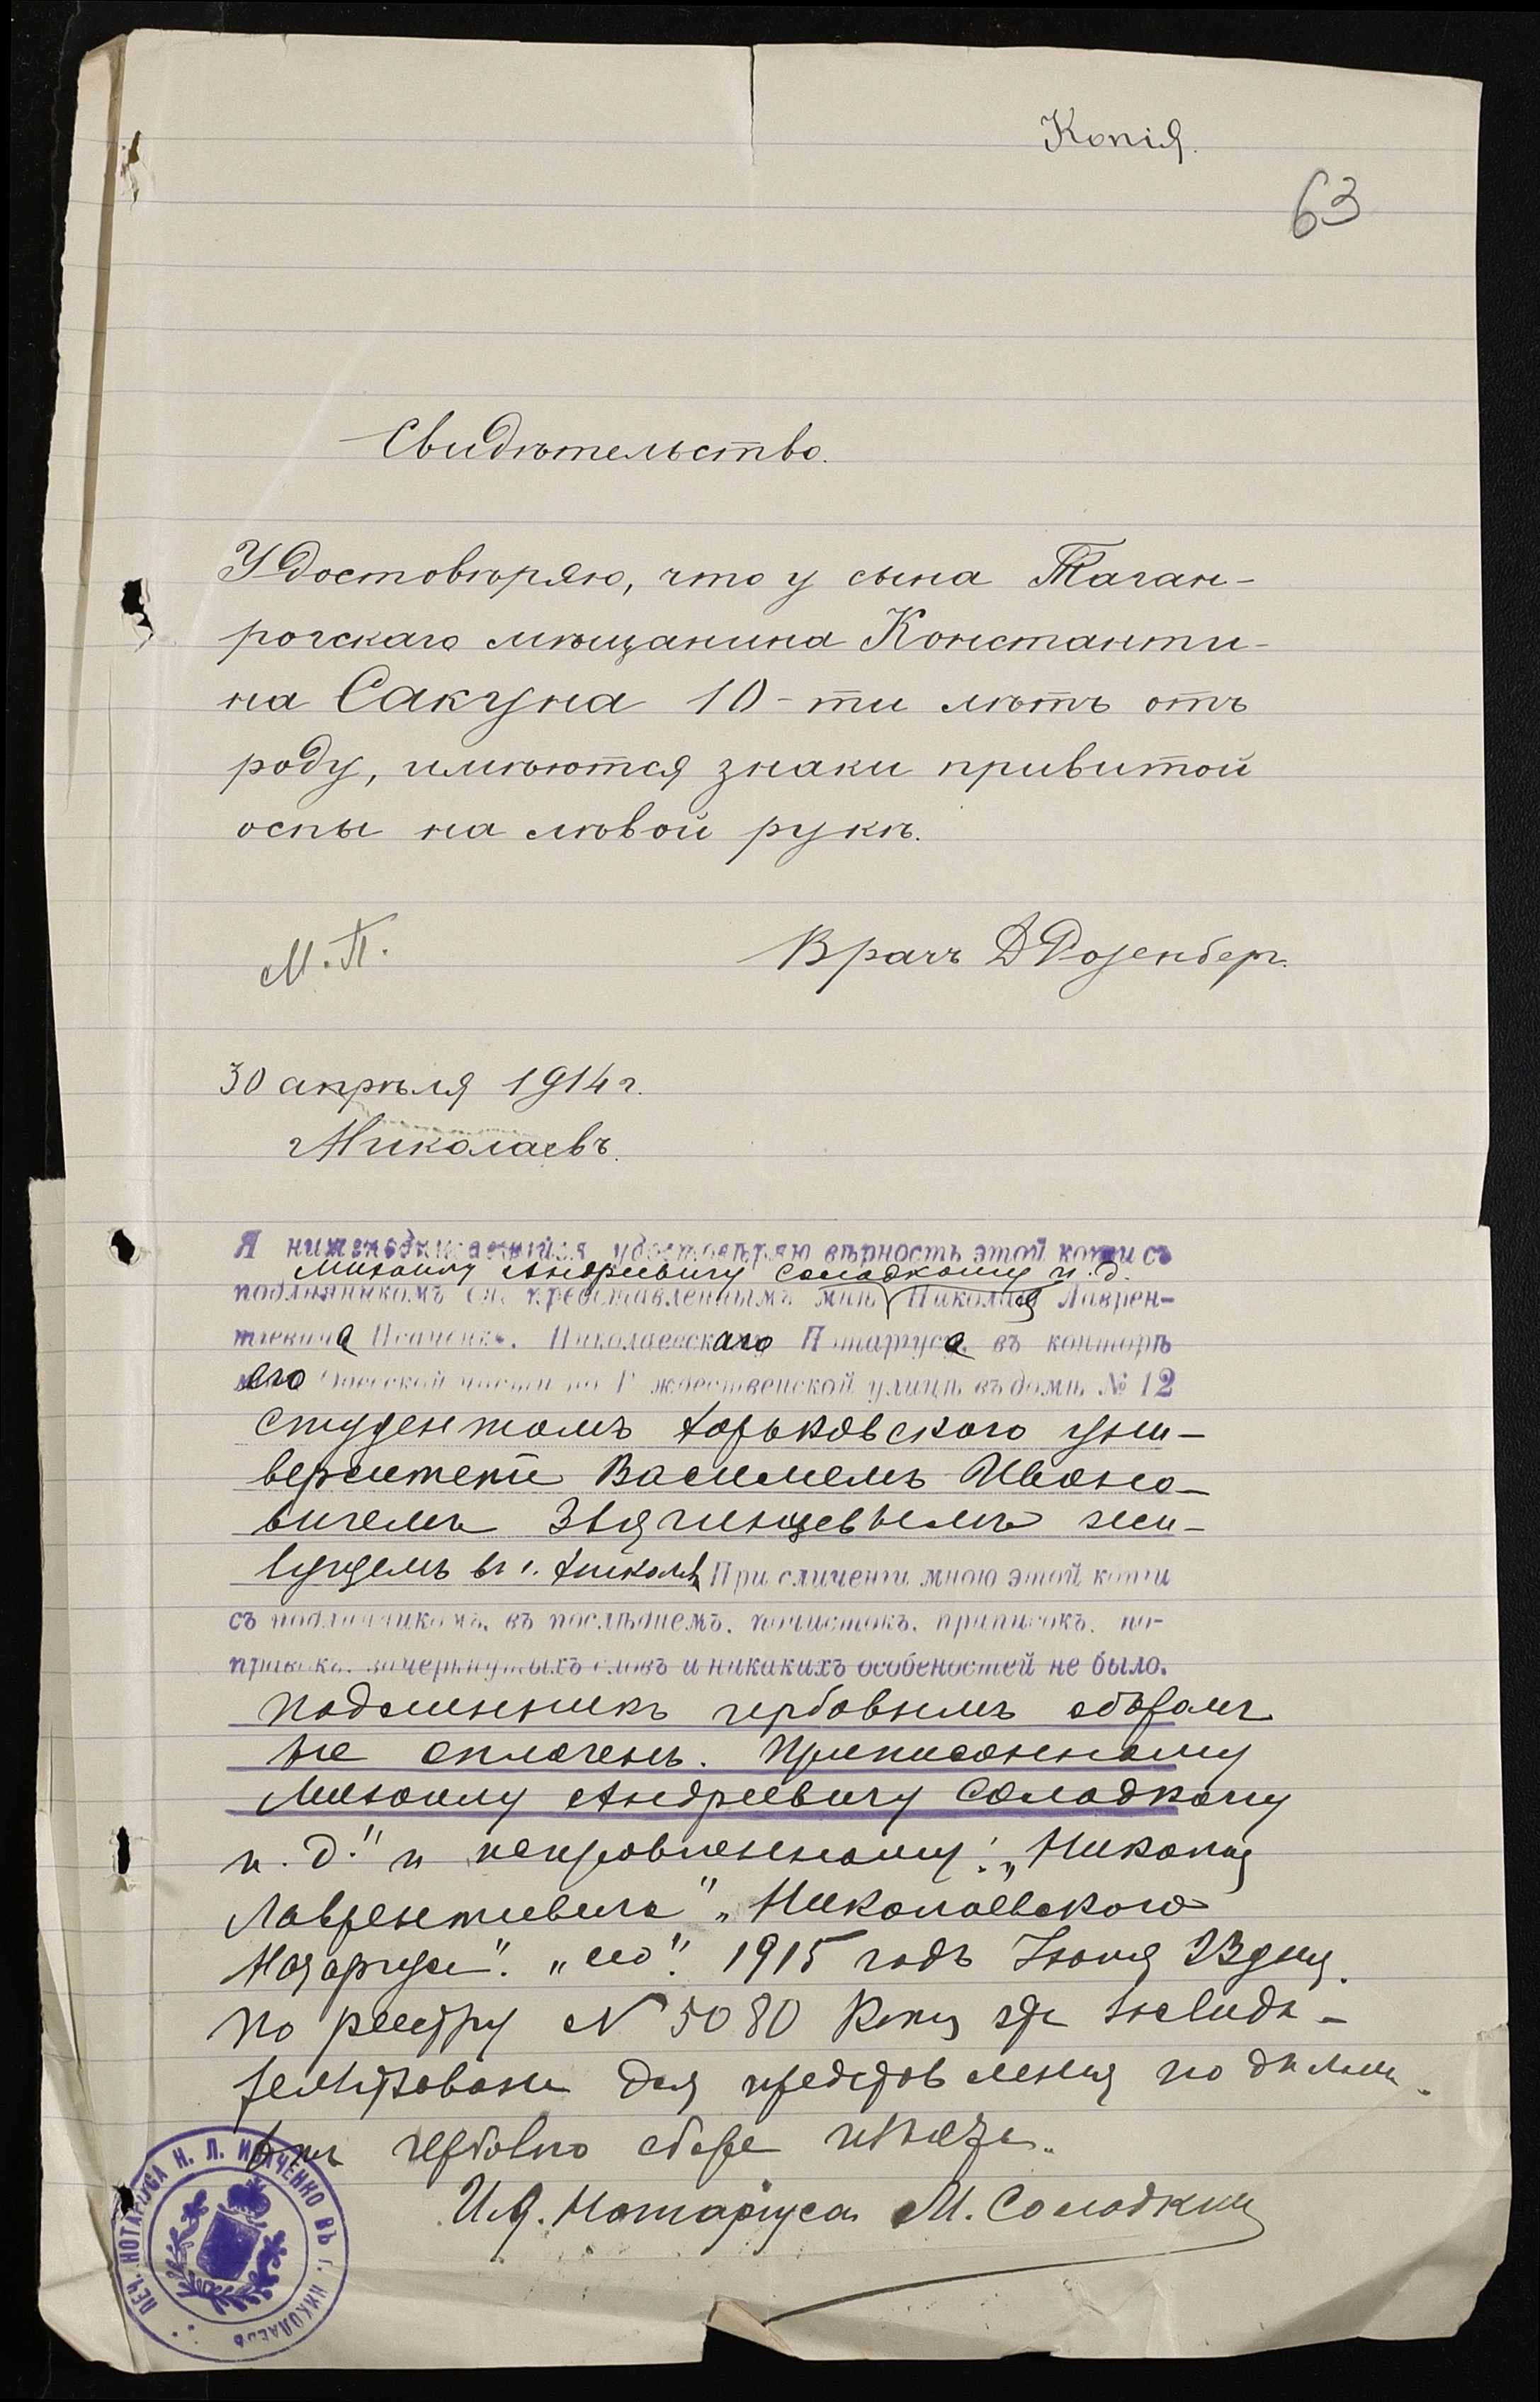 Копія.
63
Свидѣтельство.
Удостовѣряю, что у сына Таган-
рогскаго мѣщанина Константи-
на Сакуна 10-ти лѣтъ отъ
роду, имѣются знаки привитой
оспы на лѣвой рукѣ.
М.П.
Врачъ Д Розенберг.
30 апрѣля 1914 г.
г Николаевъ.
Я нижеподписавшійся, удостовѣряю вѣрность этой копіи съ
Михаилу Андреевичу Солодкому и.д.
подлинникомъ ея, представленнымъ мнѣ Николая Лаврен-
тіевича Исаченко, Николаевскаго Нотаріуса, въ конторѣ
его Одесской части по Рождественской улицѣ въ домѣ № 12
студентомъ Харьковского уни-
верситета Василіемъ Ивано-
вичемъ Звягинцевымъ жи-
вущемъ въ г. Николаевѣ При сличеніи мною этой копіи
съ подлинникомъ, въ послѣднемъ, почистокъ, приписокъ, по-
правокъ, зачеркнутыхъ словъ и никакихъ особеностей не было.
подлинникъ гербовымъ сборомъ
не оплаченъ. Приписанному
Михаилу Андреевичу Солодкому
и. д." и исправленному: „Николая
Лаврентіевича" „Николаевского
Нотаріуса". „его". 1915 годъ Іюня 23 дня.
по реестру № 5080 Копія эта засвидѣ-
тельствована для представленія по
гербово сборе
И.Д. Нотаріуса М. Солодкій
ПЕЧ. НОТАРІУСА Н. Л. ИСАЧЕНКО ВЪ Г. НИКОЛАЕВѢ